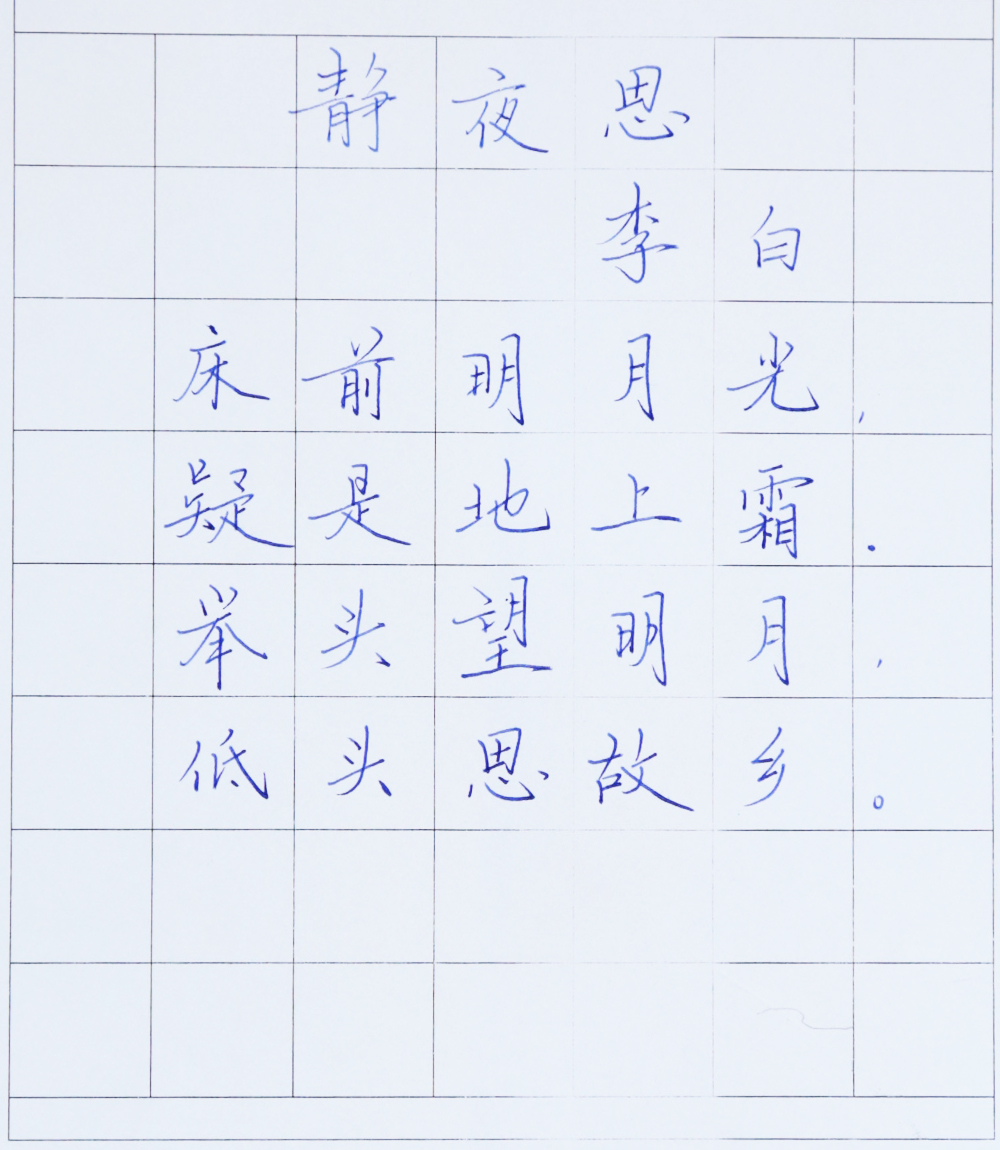 静夜思
李白
床前明月光，
疑是地上霜.
举头望明月，
低头思故乡。